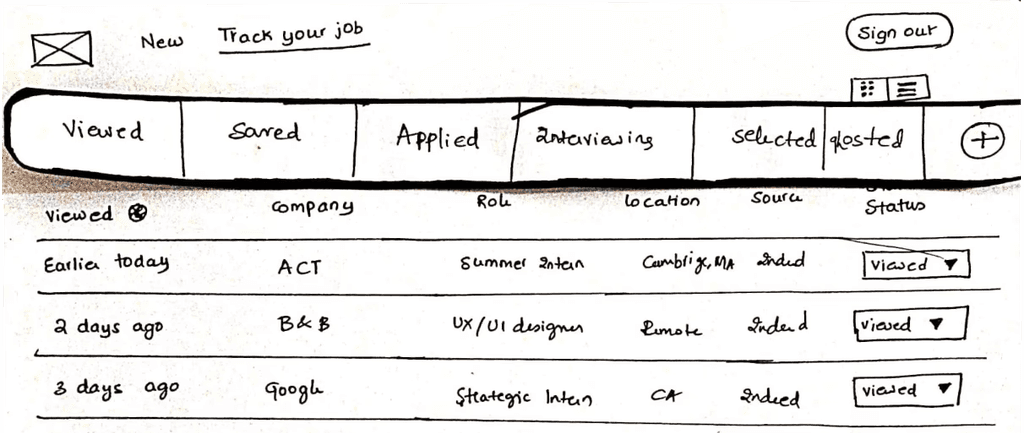 New Track your job Sign out
Viewed Saved Applied Interviewing selected ghosted +
Viewed Company Role location Source Status
Earlier today ACT Summer Intern Cambrige, MA Indeed Viewed
2 days ago B&B UX/UI designer Remote Indeed viewed
3 days ago Google Strategic Intern CA Indeed viewed